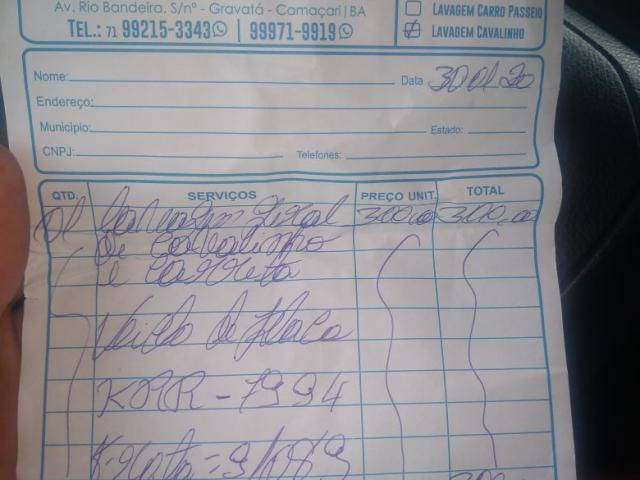 Av. Rio Bandeira, S/nº - Gravatá - Camaçari|BA
TEL.: 71 99215-3343 | 99971-9919
LAVAGEM CARRO PASSEIO
LAVAGEM CAVALINHO
Nome: Data 30 01 20
Endereço:
Município: Estado:
CNPJ: Telefones:
QTD. SERVIÇOS PREÇO UNIT. TOTAL
01 Geral 300,00 300,00
de cavalinho
e carreta
de Placa
- 7994